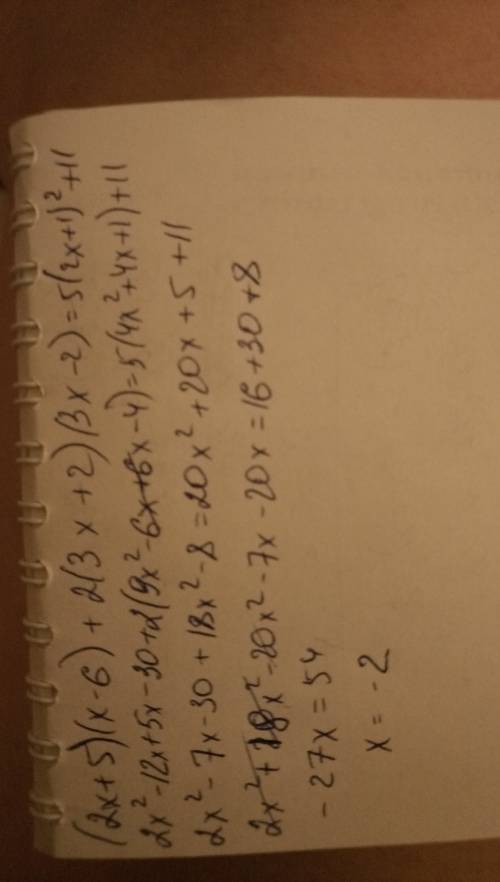 (2x+5)(x-6)+2(3x+2)(3x-2)=5(2x+1)²+11
2x²-12x+5x-30+2(9x²-6x+6x-4)=5(4x²+4x+1)+11
2x²-7x-30+18x²-8=20x²+20x+5+11
2x²+18x²-20x²-7x-20x=16+30+8
-27x=54
x=-2